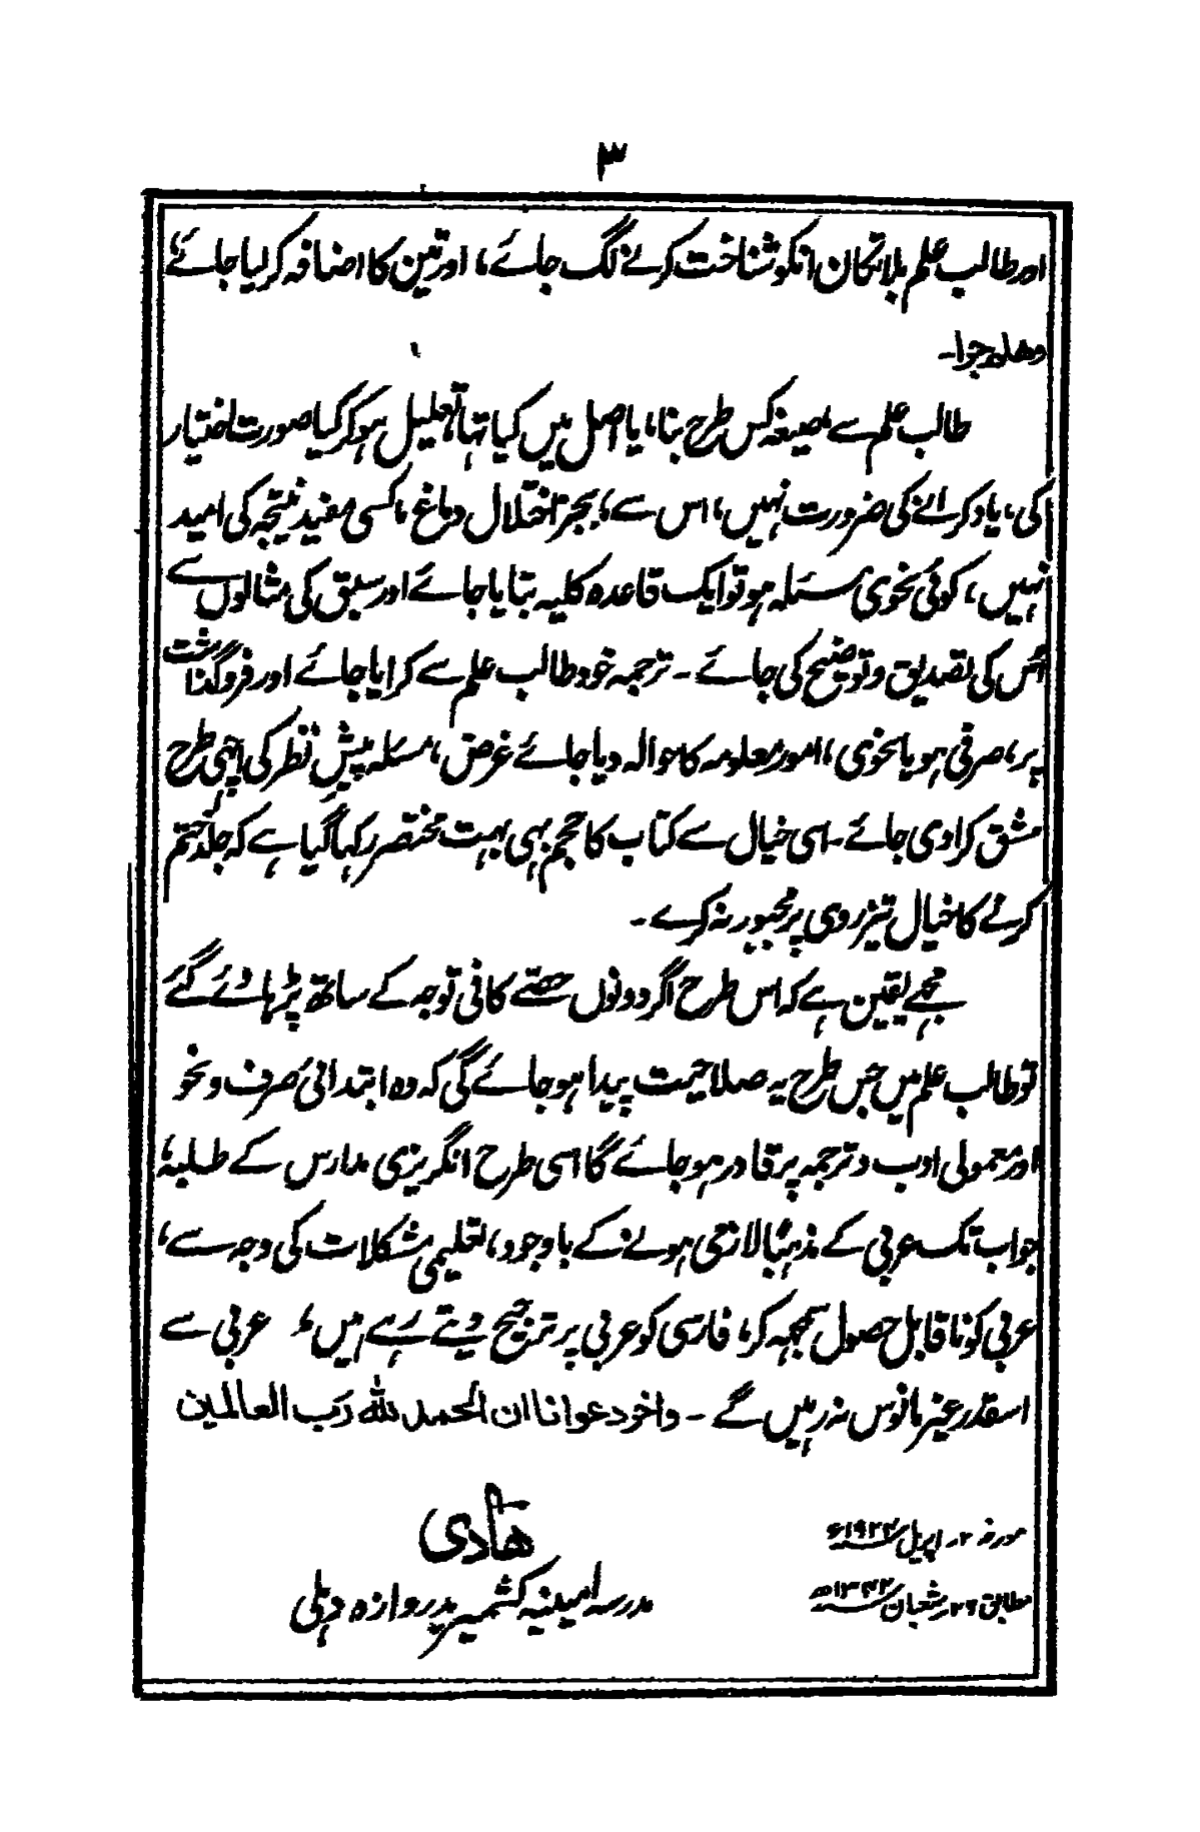 ۳
اور طالب علم بلا تکان انکو شناخت کرنے لگ جائے، اور تین کا اضافہ کر لیا جائے،
وھلم جرا۔
طالب علم سے، صیغہ کس طرح بنا، یا اصل میں کیا تہا، تعلیل ہو کر کیا صورت اختیار
کی، یاد کرانے کی ضرورت نہیں، اس سے، بجز اختلال دماغ، کسی مفید نتیجہ کی امید
نہیں، کوئی نحوی مسئلہ ہو تو ایک قاعدہ کلیہ بتایا جائے اور سبق کی مثالوں سے
اُس کی تصدیق و توضیح کی جائے۔ ترجمہ خود طالب علم سے کرایا جائے اور فروگذاشت
پر، صرفی ہو یا نحوی، امور معلومہ کا حوالہ دیا جائے غرض، مسئلہ پیش نظر کی اچہی طرح
مشق کرا دی جائے۔ اسی خیال سے کتاب کا حجم بہی بہت مختصر رکہا گیا ہے کہ جلد ختم
کرنے کا خیال تیز روی پر مجبور نہ کرے۔
مجہے یقین ہے کہ اس طرح اگر دونوں حصے کافی توجہ کے ساتھ پڑہائے گئے
تو طالب علم میں جس طرح یہ صلاحیت پیدا ہو جائے گی کہ وہ ابتدائی صرف و نحو
اور معمولی ادب و ترجمہ پر قادر ہو جائے گا اسی طرح انگریزی مدارس کے طلبہ،
جو اب تک عربی کے مذہباً لازمی ہونے کے باوجود، تعلیمی مشکلات کی وجہ سے،
عربی کو ناقابل حصول سمجہہ کر، فارسی کو عربی پر ترجیح دیتے رہے ہیں، عربی سے
اسقدر غیر مانوس نہ رہیں گے۔ واخر دعوانا ان الحمد للہ رب العالمین
ھادی
مدرسہ امینیہ کشمیری دروازہ دہلی
مورخہ ۲۔ اپریل ۱۹۲۴ء
مطابق ۲۶ شعبان ۱۳۴۲ھ